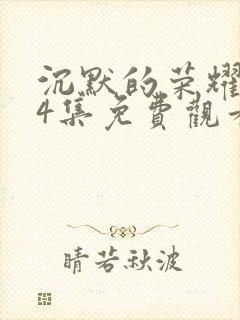 沉默的荣耀
4集免費觀
晴若秋波